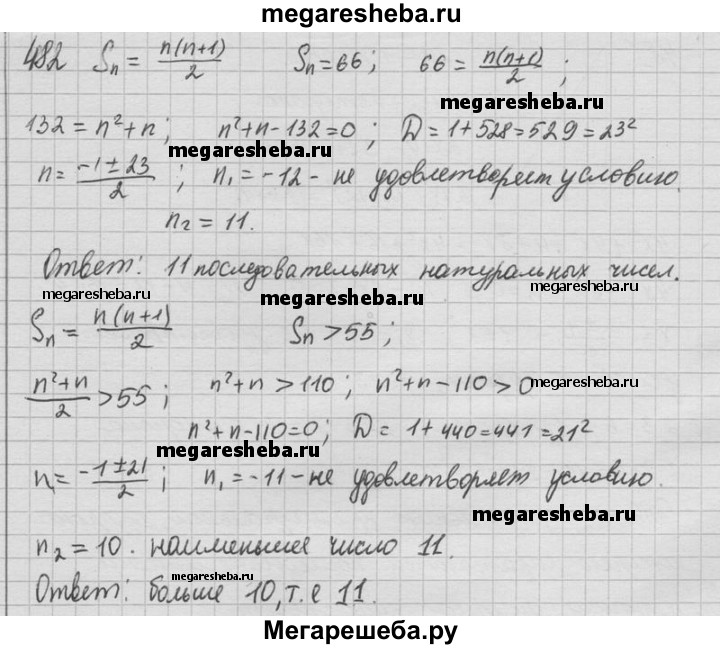 megaresheba.ru
482 Sn = n(n+1)/2 Sn = 66; 66 = n(n+1)/2;
megaresheba.ru
132 = n²+n; n²+n-132=0; D = 1+528=529=23²
megaresheba.ru
n = -1±23/2; n₁ = -12 - не удовлетворяет условию.
n₂ = 11.
Ответ: 11 последовательных натуральных чисел.
megaresheba.ru megaresheba.ru megaresheba.ru
Sn = n(n+1)/2 Sn > 55;
n²+n/2 > 55; n²+n > 110; n²+n-110 > 0
megaresheba.ru
n²+n-110=0; D = 1+440=441=21²
megaresheba.ru
n = -1±21/2; n₁ = -11 - не удовлетворяет условию.
megaresheba.ru
n₂ = 10. наименьшее число 11.
megaresheba.ru
Ответ: больше 10, т.е 11.
Мегарешеба.ру